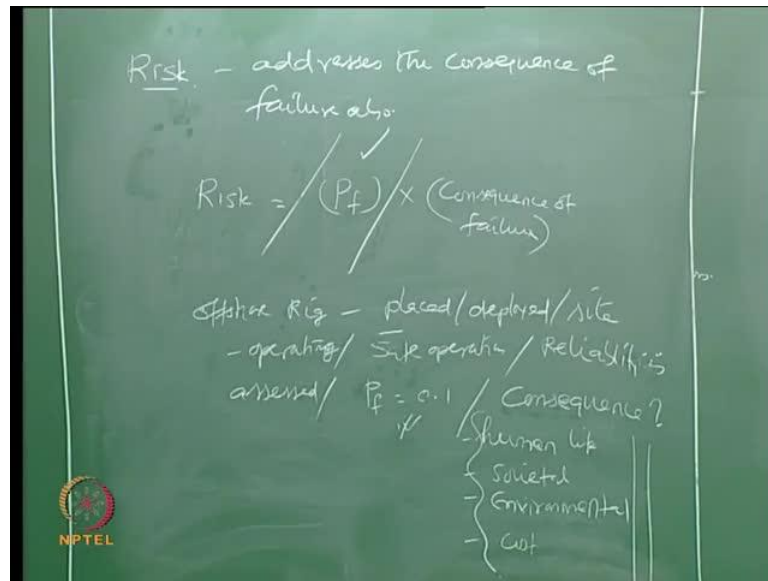 Risk - addresses the consequence of
failure also.
Risk = / (Pf) / × (Consequence of
failure)
offshore Rig - placed/deployed/site
- operating / Safe operation / Reliability is
assessed / Pf = 0.1 / Consequence?
- human life
- Societal
- Environmental
- Cost
NPTEL